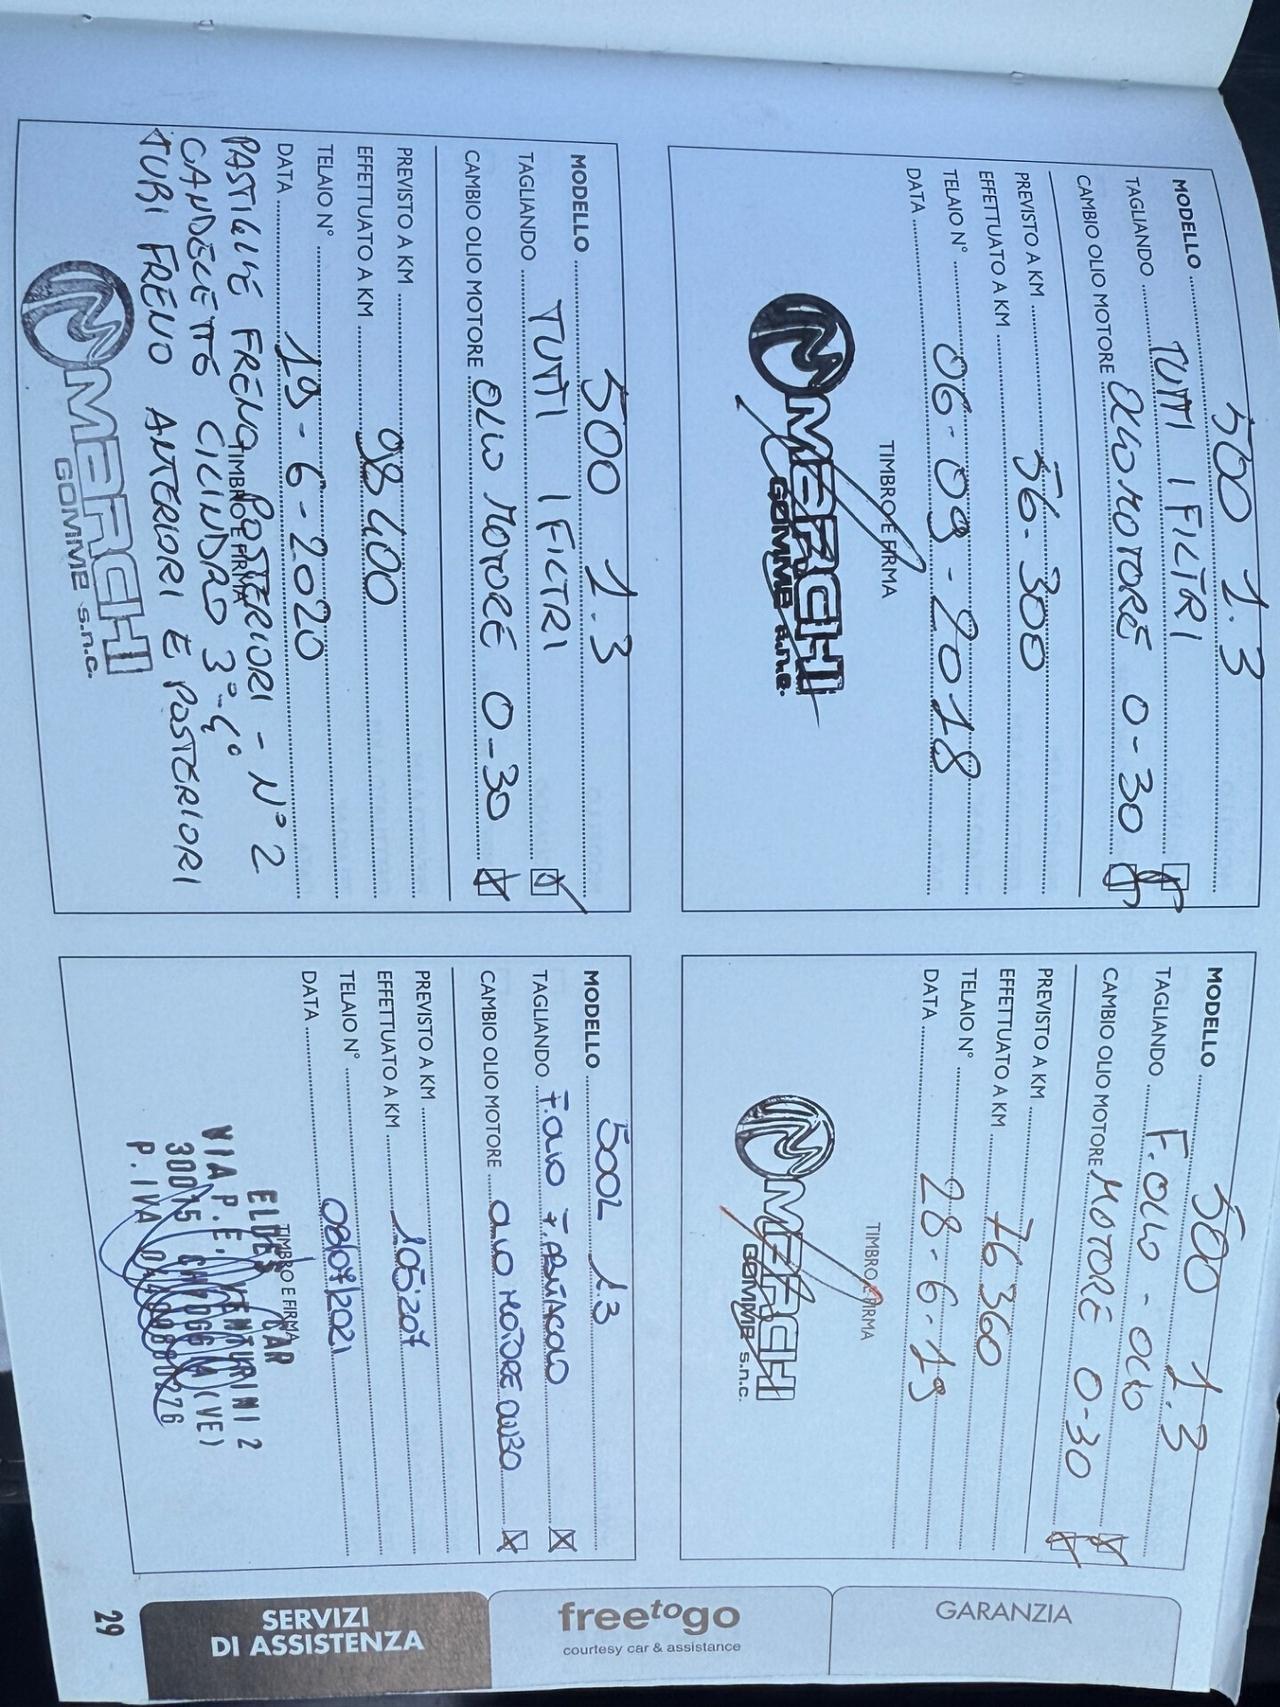 MODELLO 500 1.3
TAGLIANDO TUTTI I FILTRI
CAMBIO OLIO MOTORE OLIO MOTORE 0-30
PREVISTO A KM 56.300
EFFETTUATO A KM
TELAIO N° 06-09-2018
DATA
TIMBRO E FIRMA
MERCHI
GOMME s.n.c.
MODELLO 500 1.3
TAGLIANDO F. OLIO - OLIO
CAMBIO OLIO MOTORE MOTORE 0-30
PREVISTO A KM
EFFETTUATO A KM 76360
TELAIO N°
DATA 28-6-19
TIMBRO E FIRMA
MERCHI
GOMME s.n.c.
MODELLO 500 1.3
TAGLIANDO TUTTI I FILTRI
CAMBIO OLIO MOTORE OLIO MOTORE 0-30
PREVISTO A KM
EFFETTUATO A KM 98400
TELAIO N°
DATA 19-6-2020
PASTIGLIE FRENO POSTERIORI - N°2
TIMBRO E FIRMA
CANDELETTE CILINDRO 3°-4°
TUBI FRENO ANTERIORI E POSTERIORI
MERCHI
GOMME s.n.c.
MODELLO 500L 1.3
TAGLIANDO F.OLIO F.ABITACOLO
CAMBIO OLIO MOTORE OLIO MOTORE 0W30
PREVISTO A KM
EFFETTUATO A KM 105'207
TELAIO N°
DATA 08/07/2021
TIMBRO E FIRMA
CAR
VIA P.E. VENTURINI 2
30015 CHIOGGIA (VE)
P.IVA
GARANZIA
freetogo
courtesy car & assistance
SERVIZI
DI ASSISTENZA
29